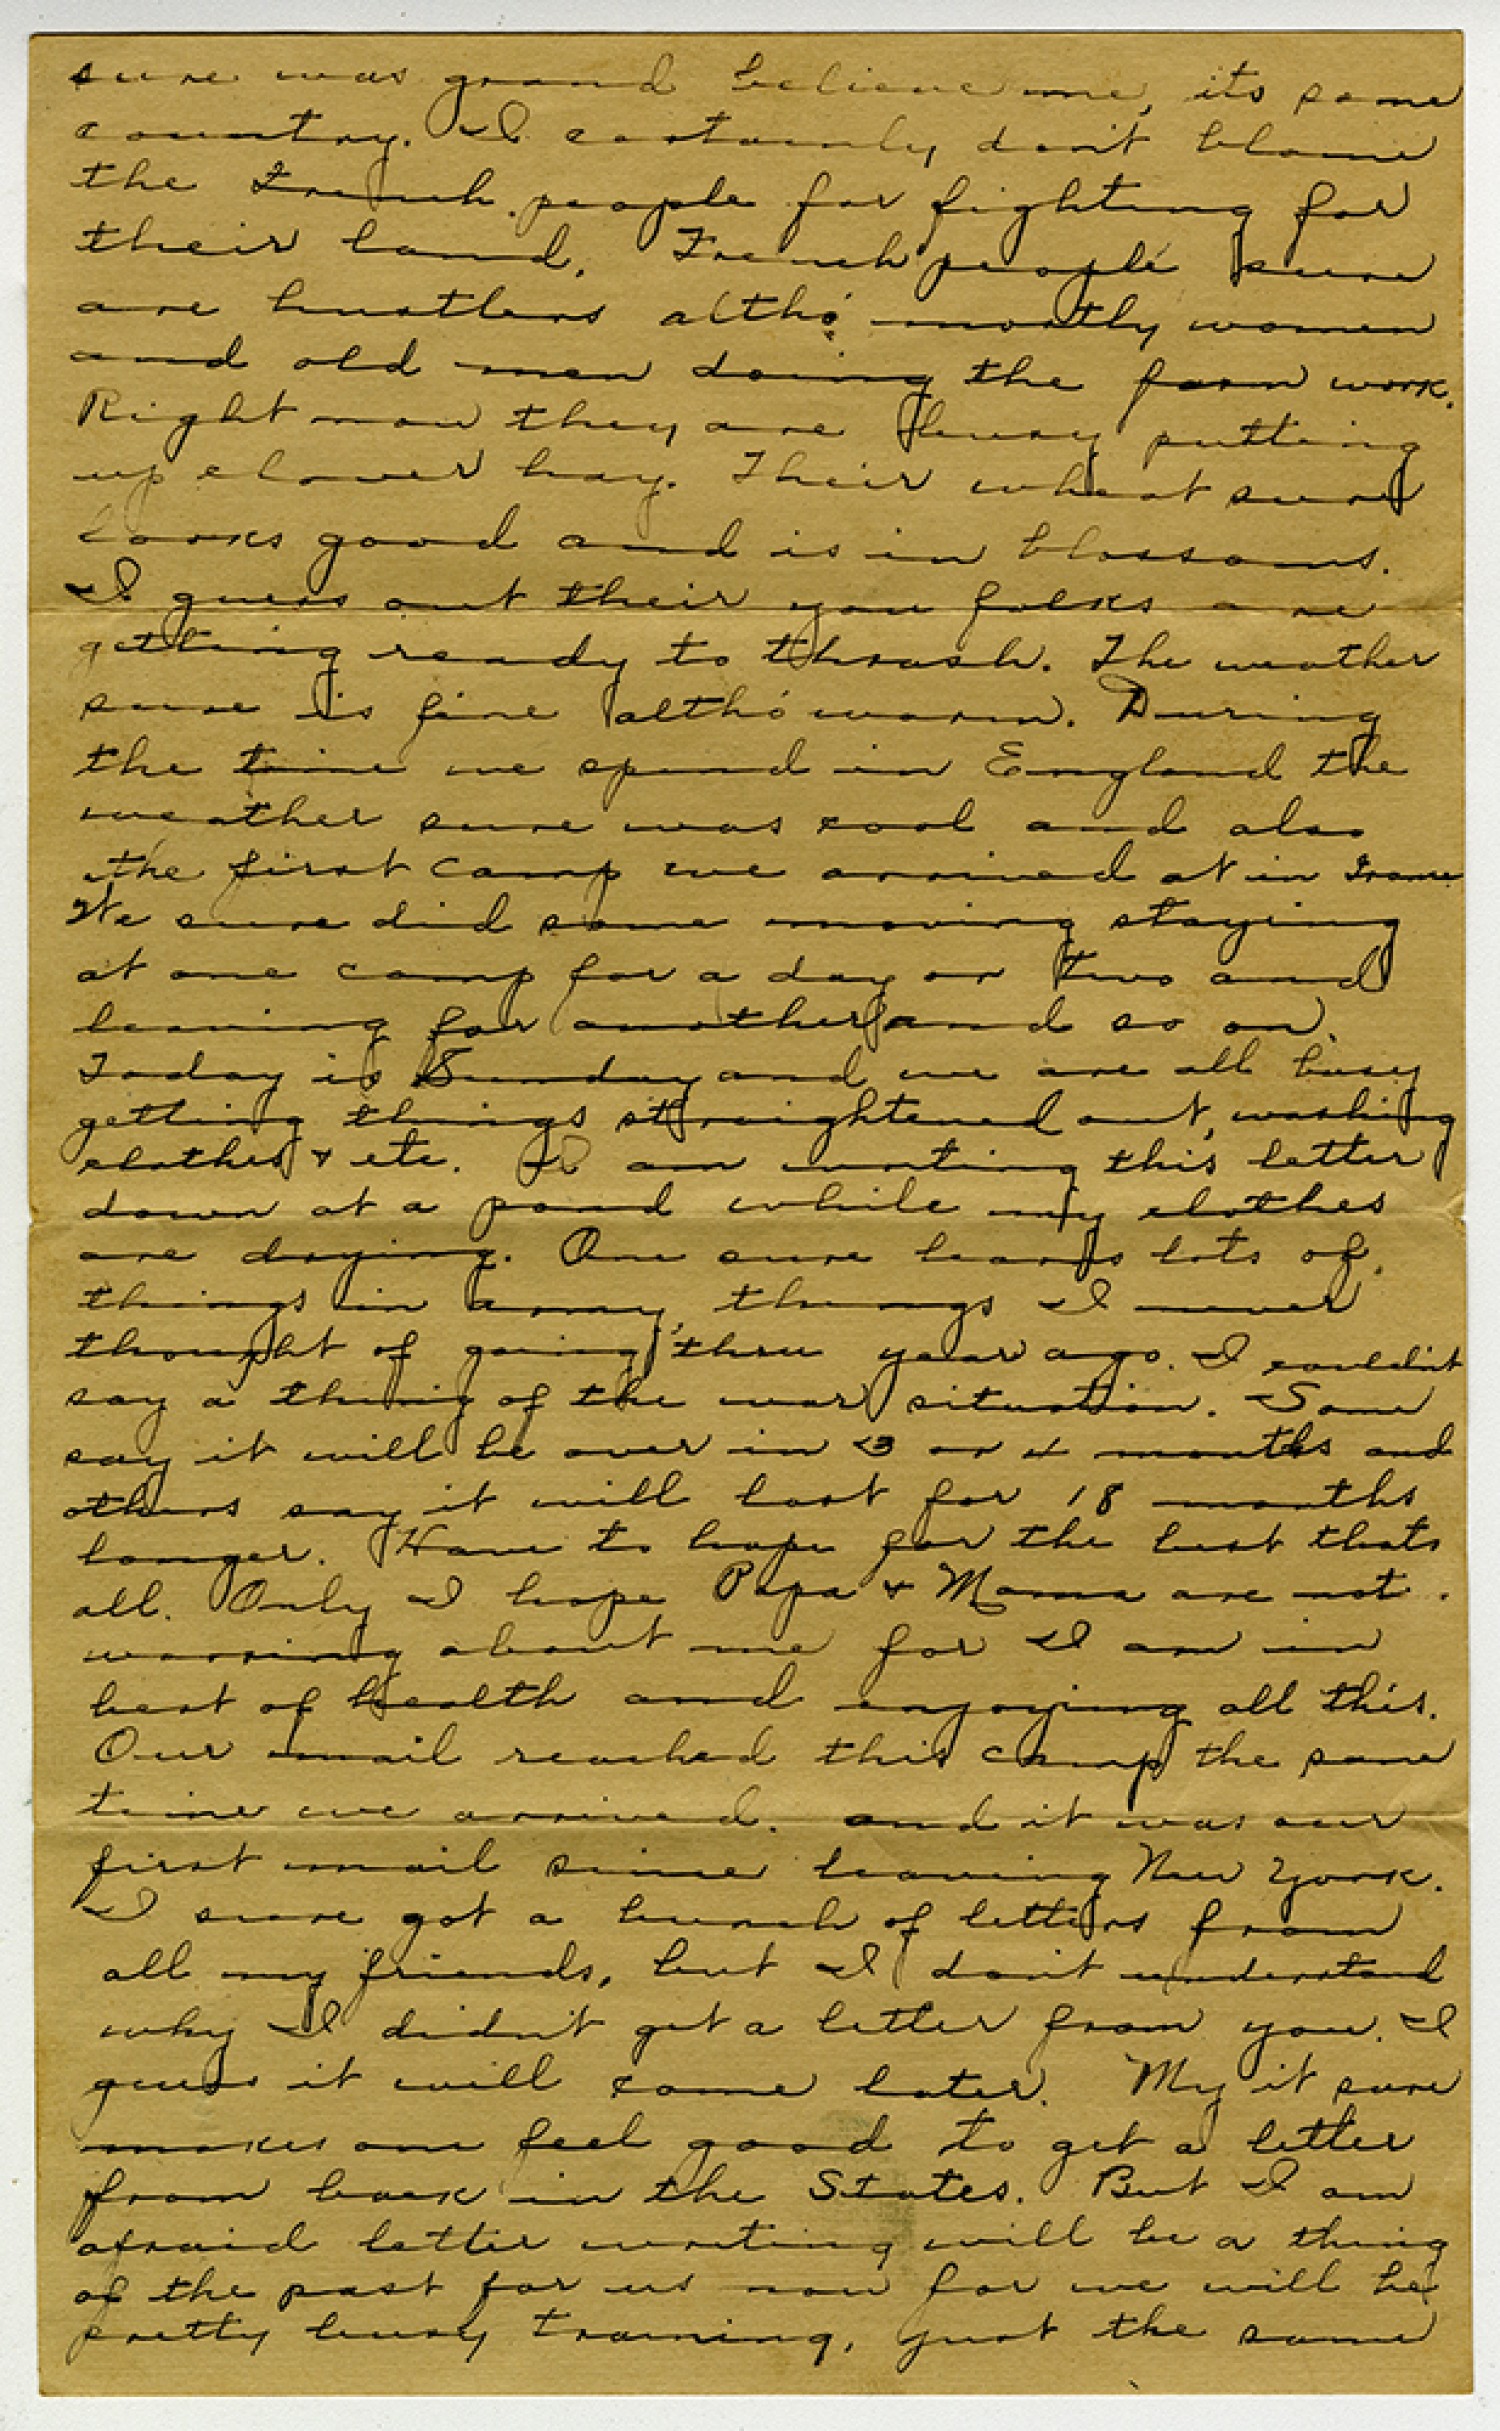 sure was grand believe me, its some
country. I certainly don't blame
the French people for fighting for
their land. French people sure
are hustlers altho' mostly women
and old men doing the farm work.
Right now they are busy putting
up clover hay. Their wheat sure
looks good and is in blossoms.
I guess out their you folks are
getting ready to thrash. The weather
sure is fine altho' warm. During
the time we spend in England the
weather sure was cool and also
the first camp we arrived at in France
We sure did some moving staying
at one camp for a day or two and
leaving for another and so on.
Today is Sunday and we are all busy
getting things straightened out, washing
clothes & etc. I am writing this letter
down at a pond while my clothes
are drying. One sure learns lots of
things in army, things I never
thought of going thru year ago. I couldn't
say a thing of the war situation. Some
say it will be over in 3 or 4 months and
others say it will last for 18 months
longer. Have to hope for the best thats
all. Only I hope Papa & Mama are not
worring about me for I am in
best of health and enjoying all this.
Our mail reached this camp the same
time we arrived. and it was our
first mail since leaving New York.
I sure got a bunch of letters from
all my friends, but I don't understand
why I didn't get a letter from you. I
guess it will come later. My it sure
makes one feel good to get a letter
from back in the States. But I am
afraid letter writing will be a thing
of the past for us now for we will be
pretty busy training, just the same